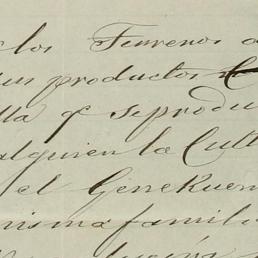 los Terrenos
sus productos
lla q.e se produ
alguien la Cult
el Genekuen
misma famili